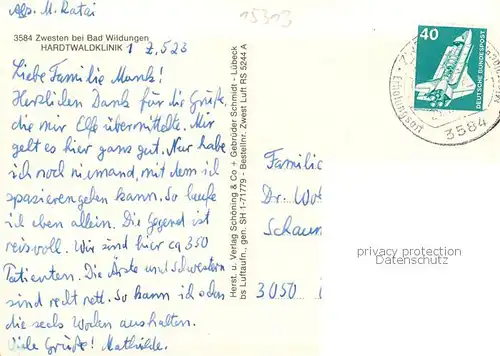 Abs. M. Ratai
15313
3584 Zwesten bei Bad Wildungen
HARDTWALDKLINIK 1 Z, 523
Liebe Familie Mank!
Herzlichen Dank für die Grüße,
die mir Elfe übermittelte. Mir
geht es hier ganz gut. Nur habe
ich noch niemand, mit dem ich
spazierengehen kann. So laufe
ich eben allein. Die Gegend ist
reisvoll. Wir sind hier ca 350
Patienten. Die Ärzte und Schwestern
sind recht nett. So kann ich schon
die sechs Wochen aushalten.
Viele Grüße! Mathilde.
Herst. u. Verlag Schöning & Co + Gebrüder Schmidt - Lübeck
bs Luftaufn., gen. SH 1-71779 - Bestellnr. Zwest Luft RS 5244 A
40
DEUTSCHE BUNDESPOST
3584
Familie
Dr. Wo
Schaum
3050
privacy protection
Datenschutz